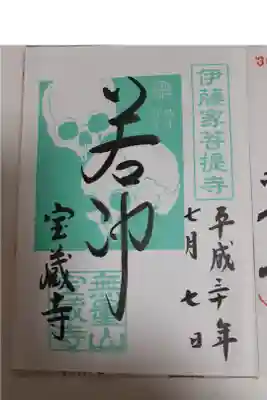 伊藤家菩提寺
平成三十年
七月七日
奉拝
若冲
無量山
宝蔵寺
宝蔵寺